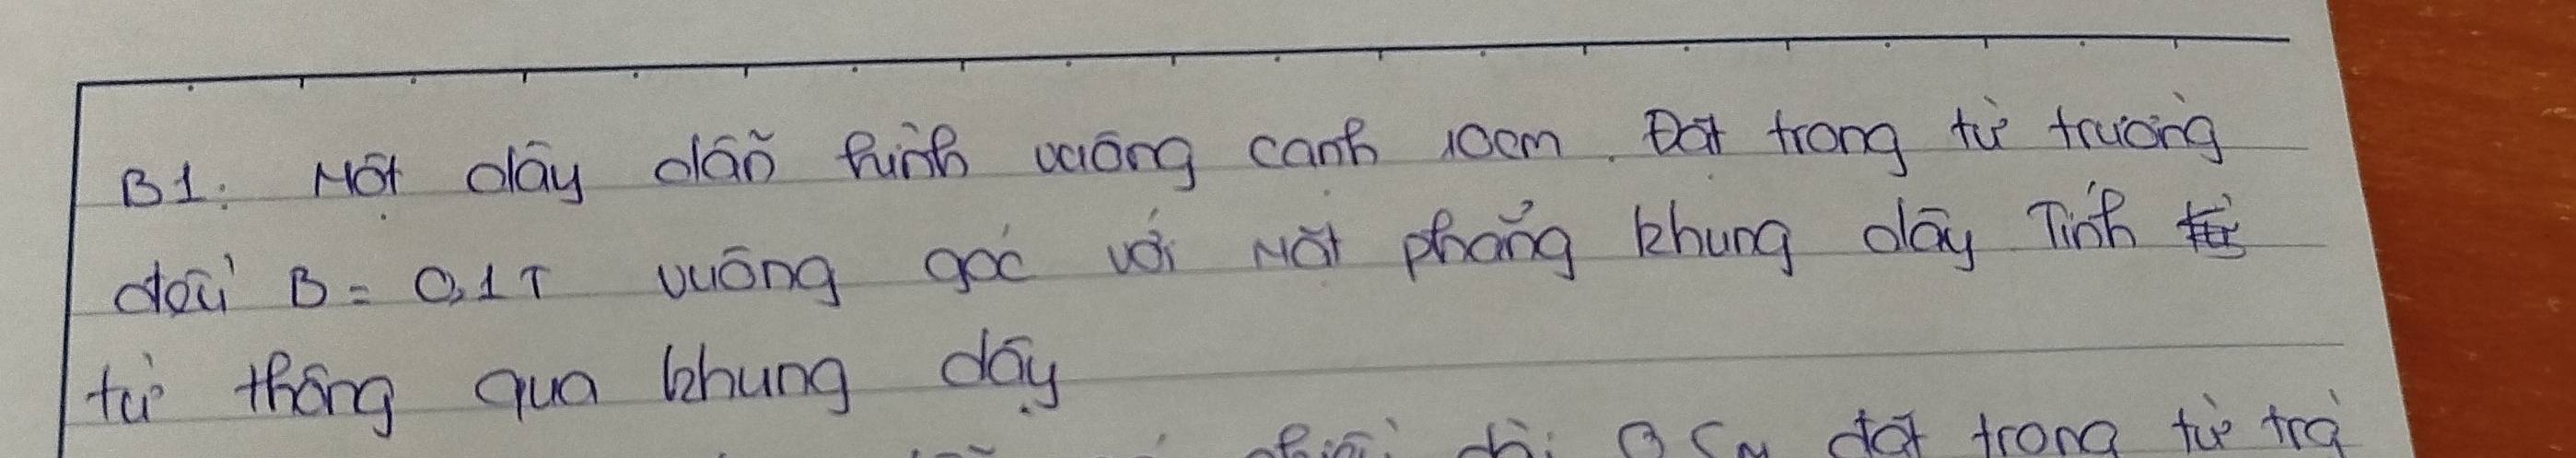 B1: Một dây dẫn hình vuông cạnh 10cm. Đặt trong từ trường
đều B = 0,1T vuông góc với mặt phẳng khung dây Tính
từ thông qua khung dây
đặt trong từ trả